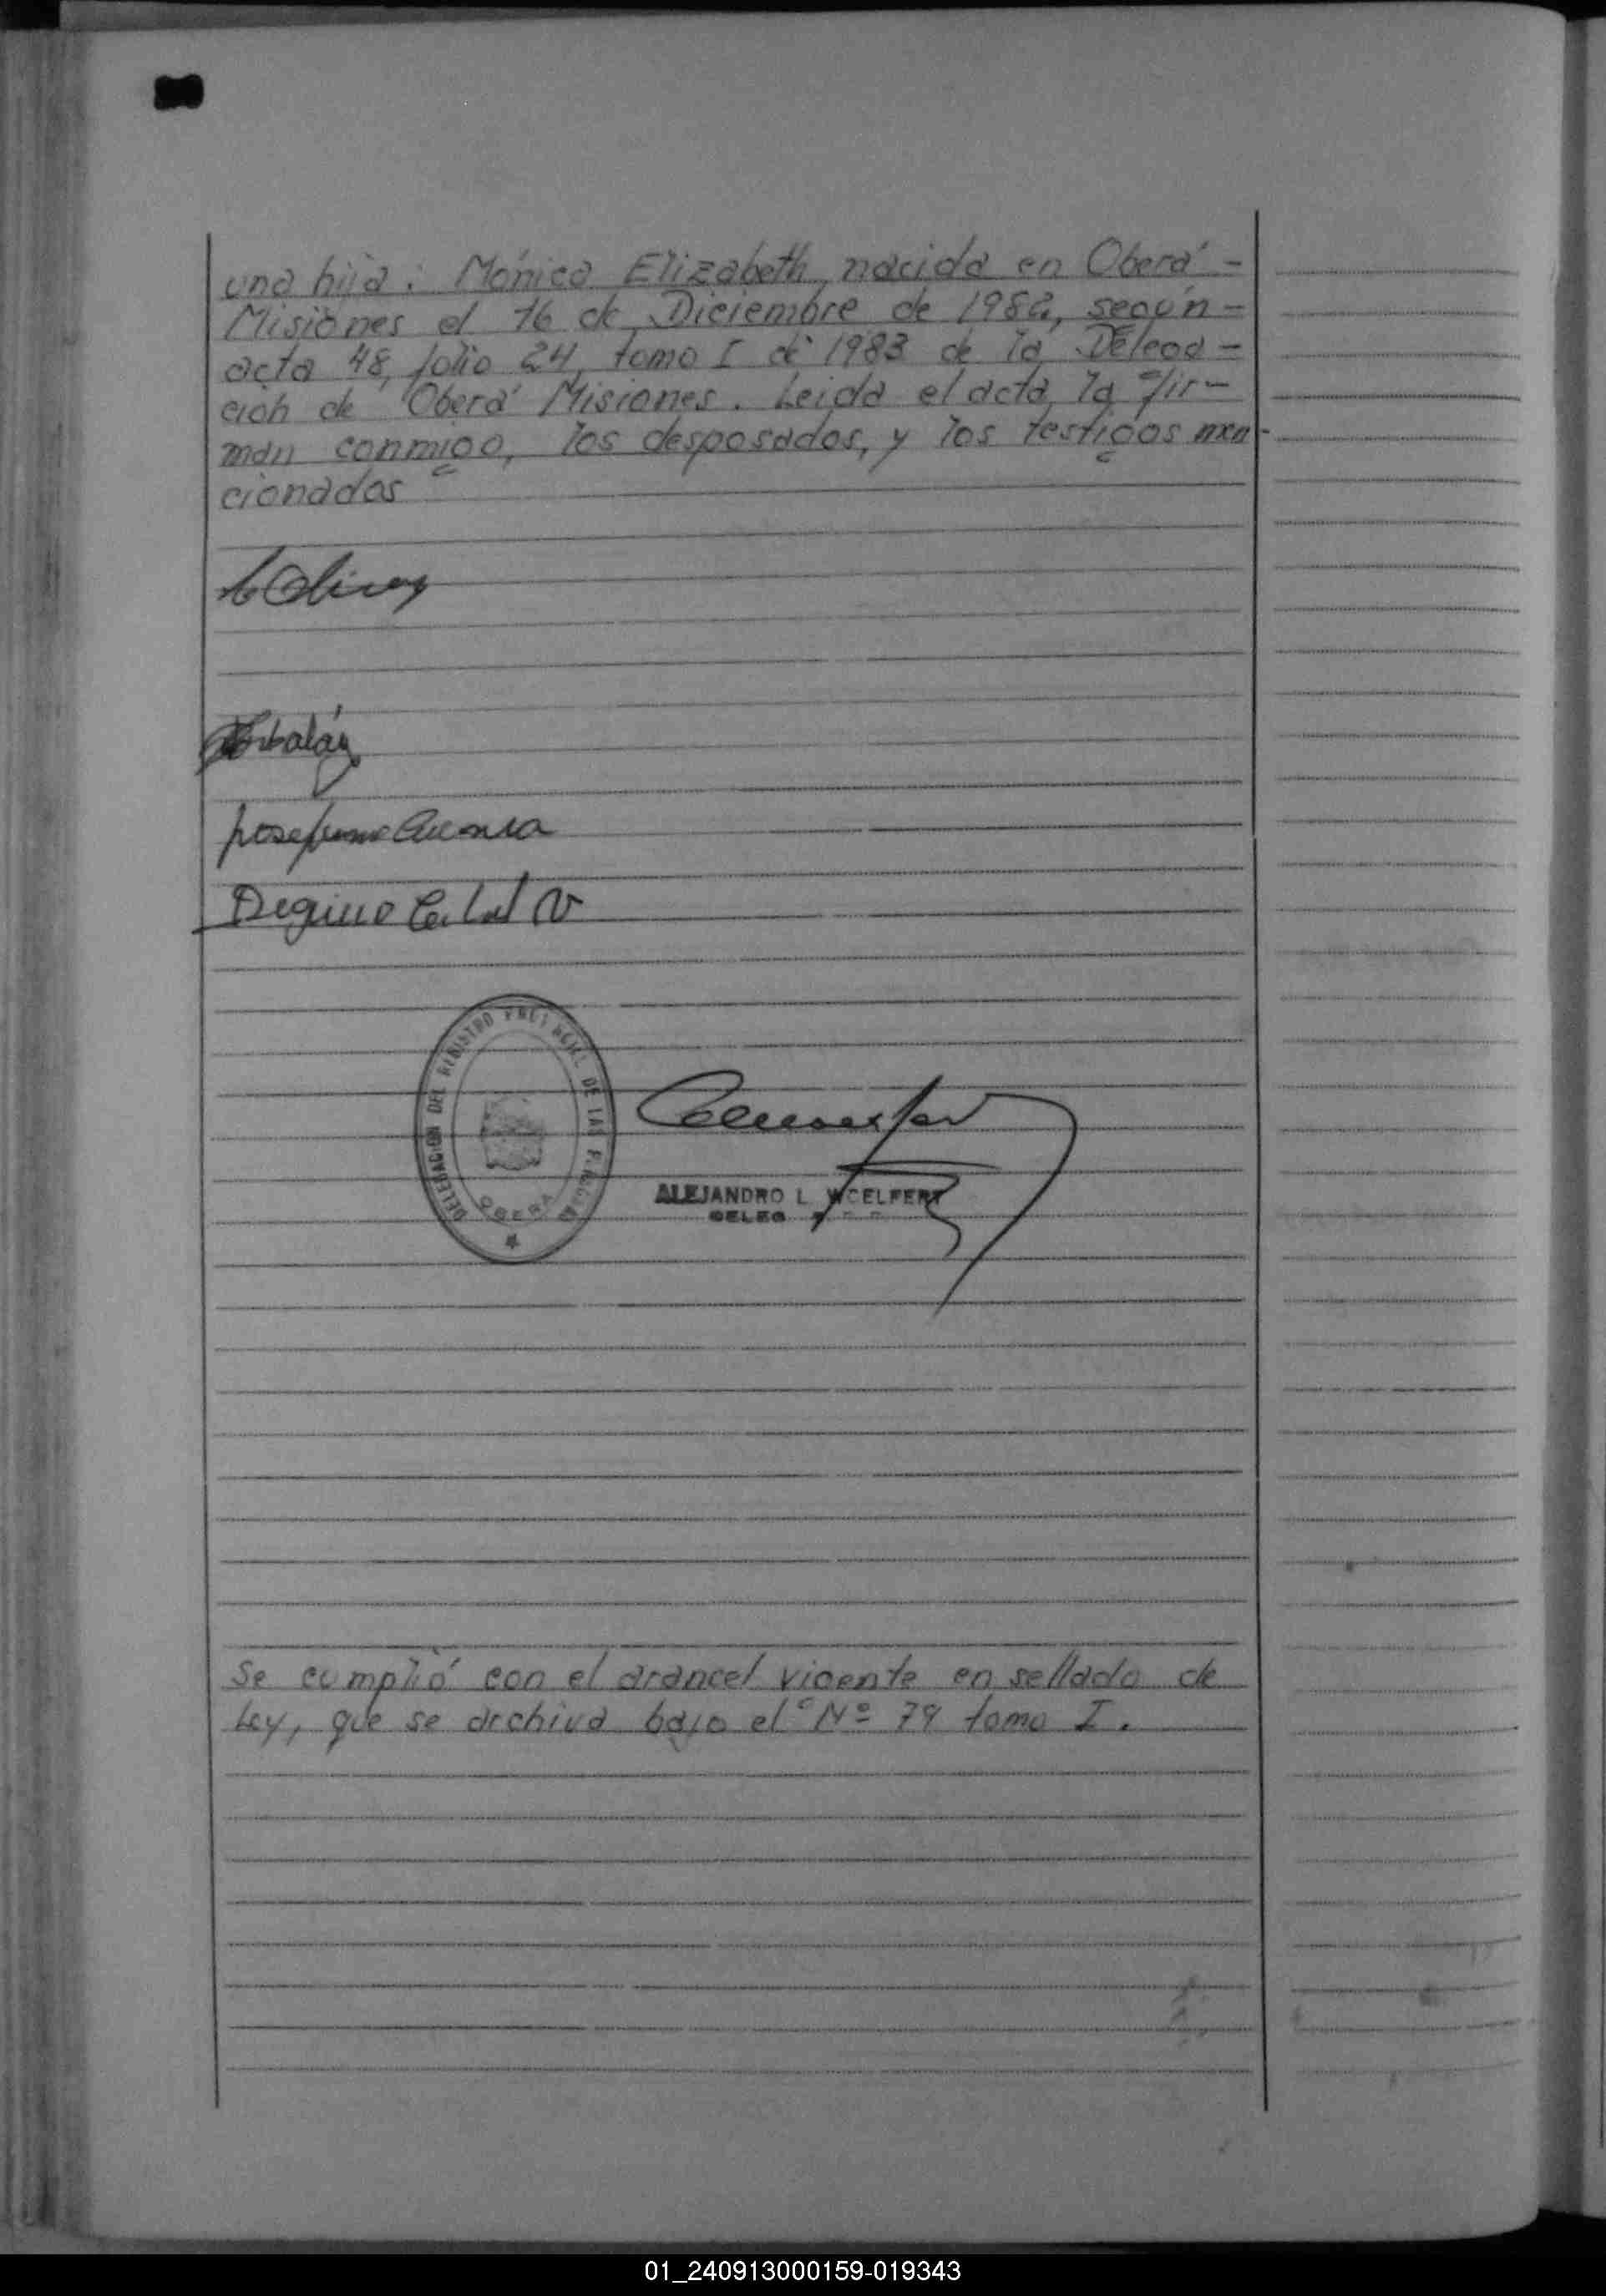 una hija: Mónica Elizabeth, nacida en Oberá -
Misiones el 16 de Diciembre de 1982, según -
acta 48, folio 24, tomo I de 1983 de la Delega -
ción de Oberá Misiones. Leida el acta, la fir -
man conmigo, los desposados, y los testigos men -
cionados
Josefina
DELEGACION DEL REGISTRO PROVINCIAL DE LAS PERSONAS
OBERA
ALEJANDRO L. WOELFERT
DELEG
Se cumplió con el arancel vigente en sellado de
Ley, que se archiva bajo el Nº 79 tomo I.
01_240913000159-019343